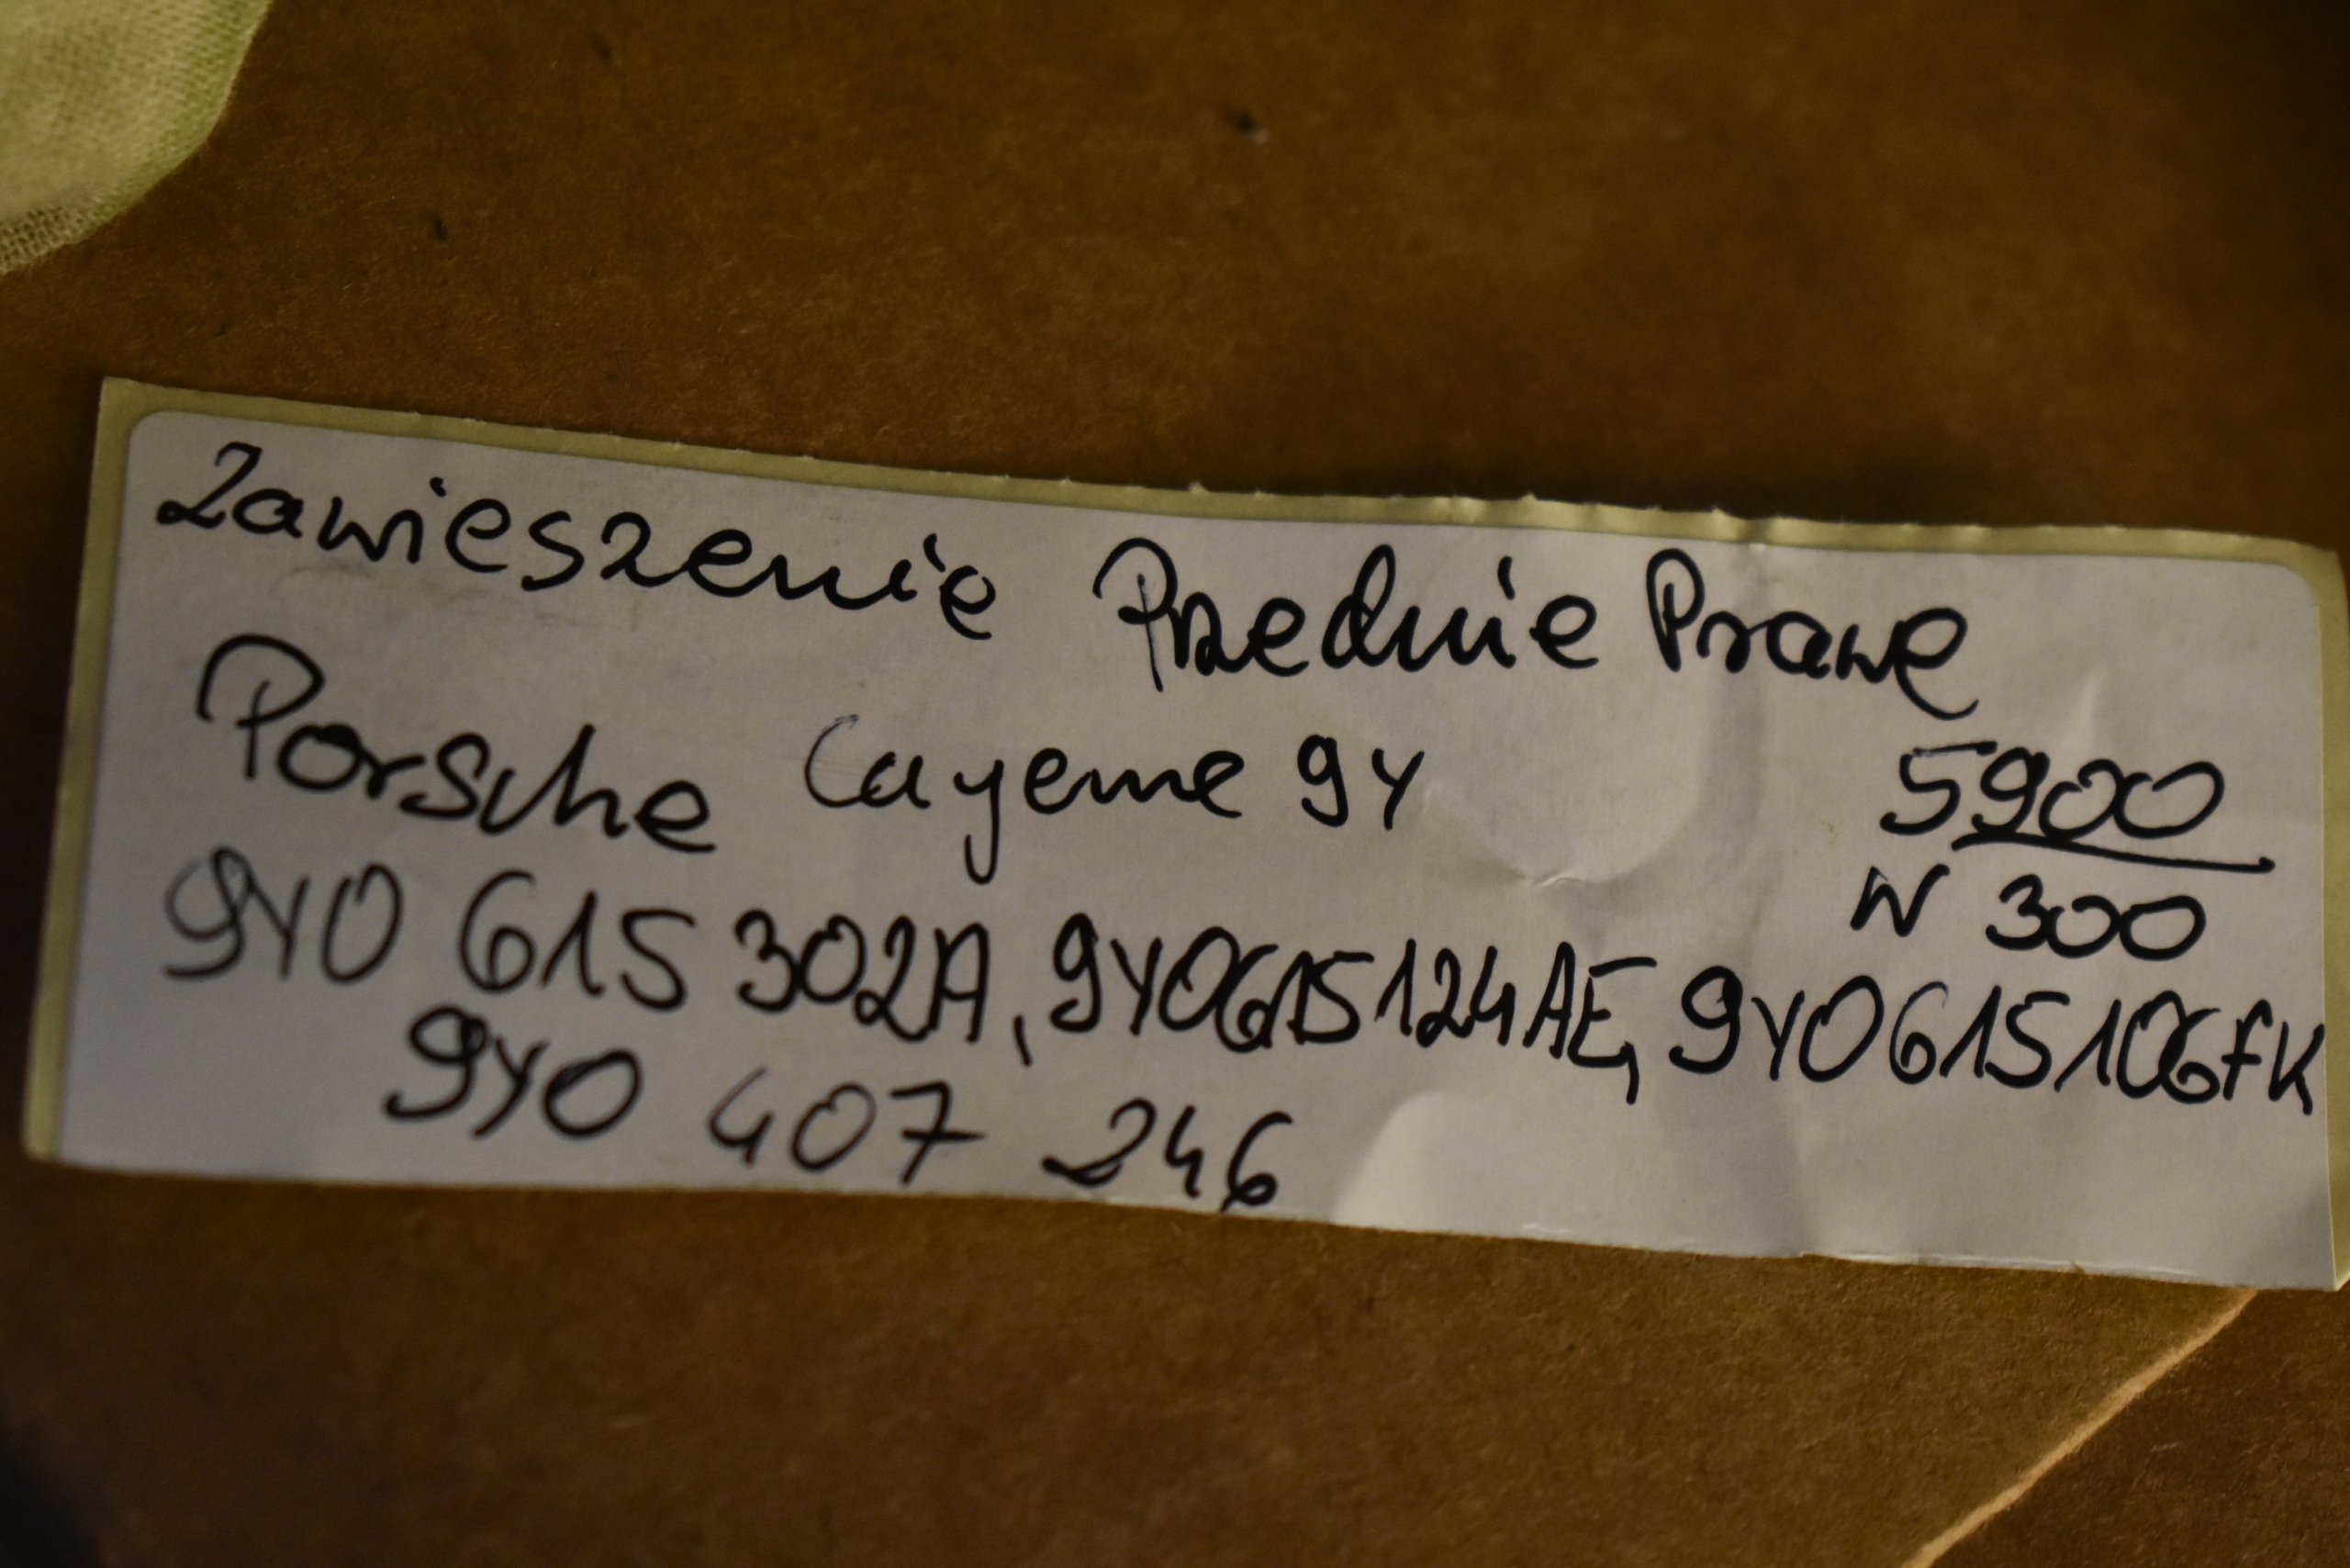 Zawieszenie Przednie Prawe
Porsche Cayenne 9Y
5900
W 300
9Y0 615 302A, 9Y0615124AE, 9Y0615106FK
9Y0 407 246